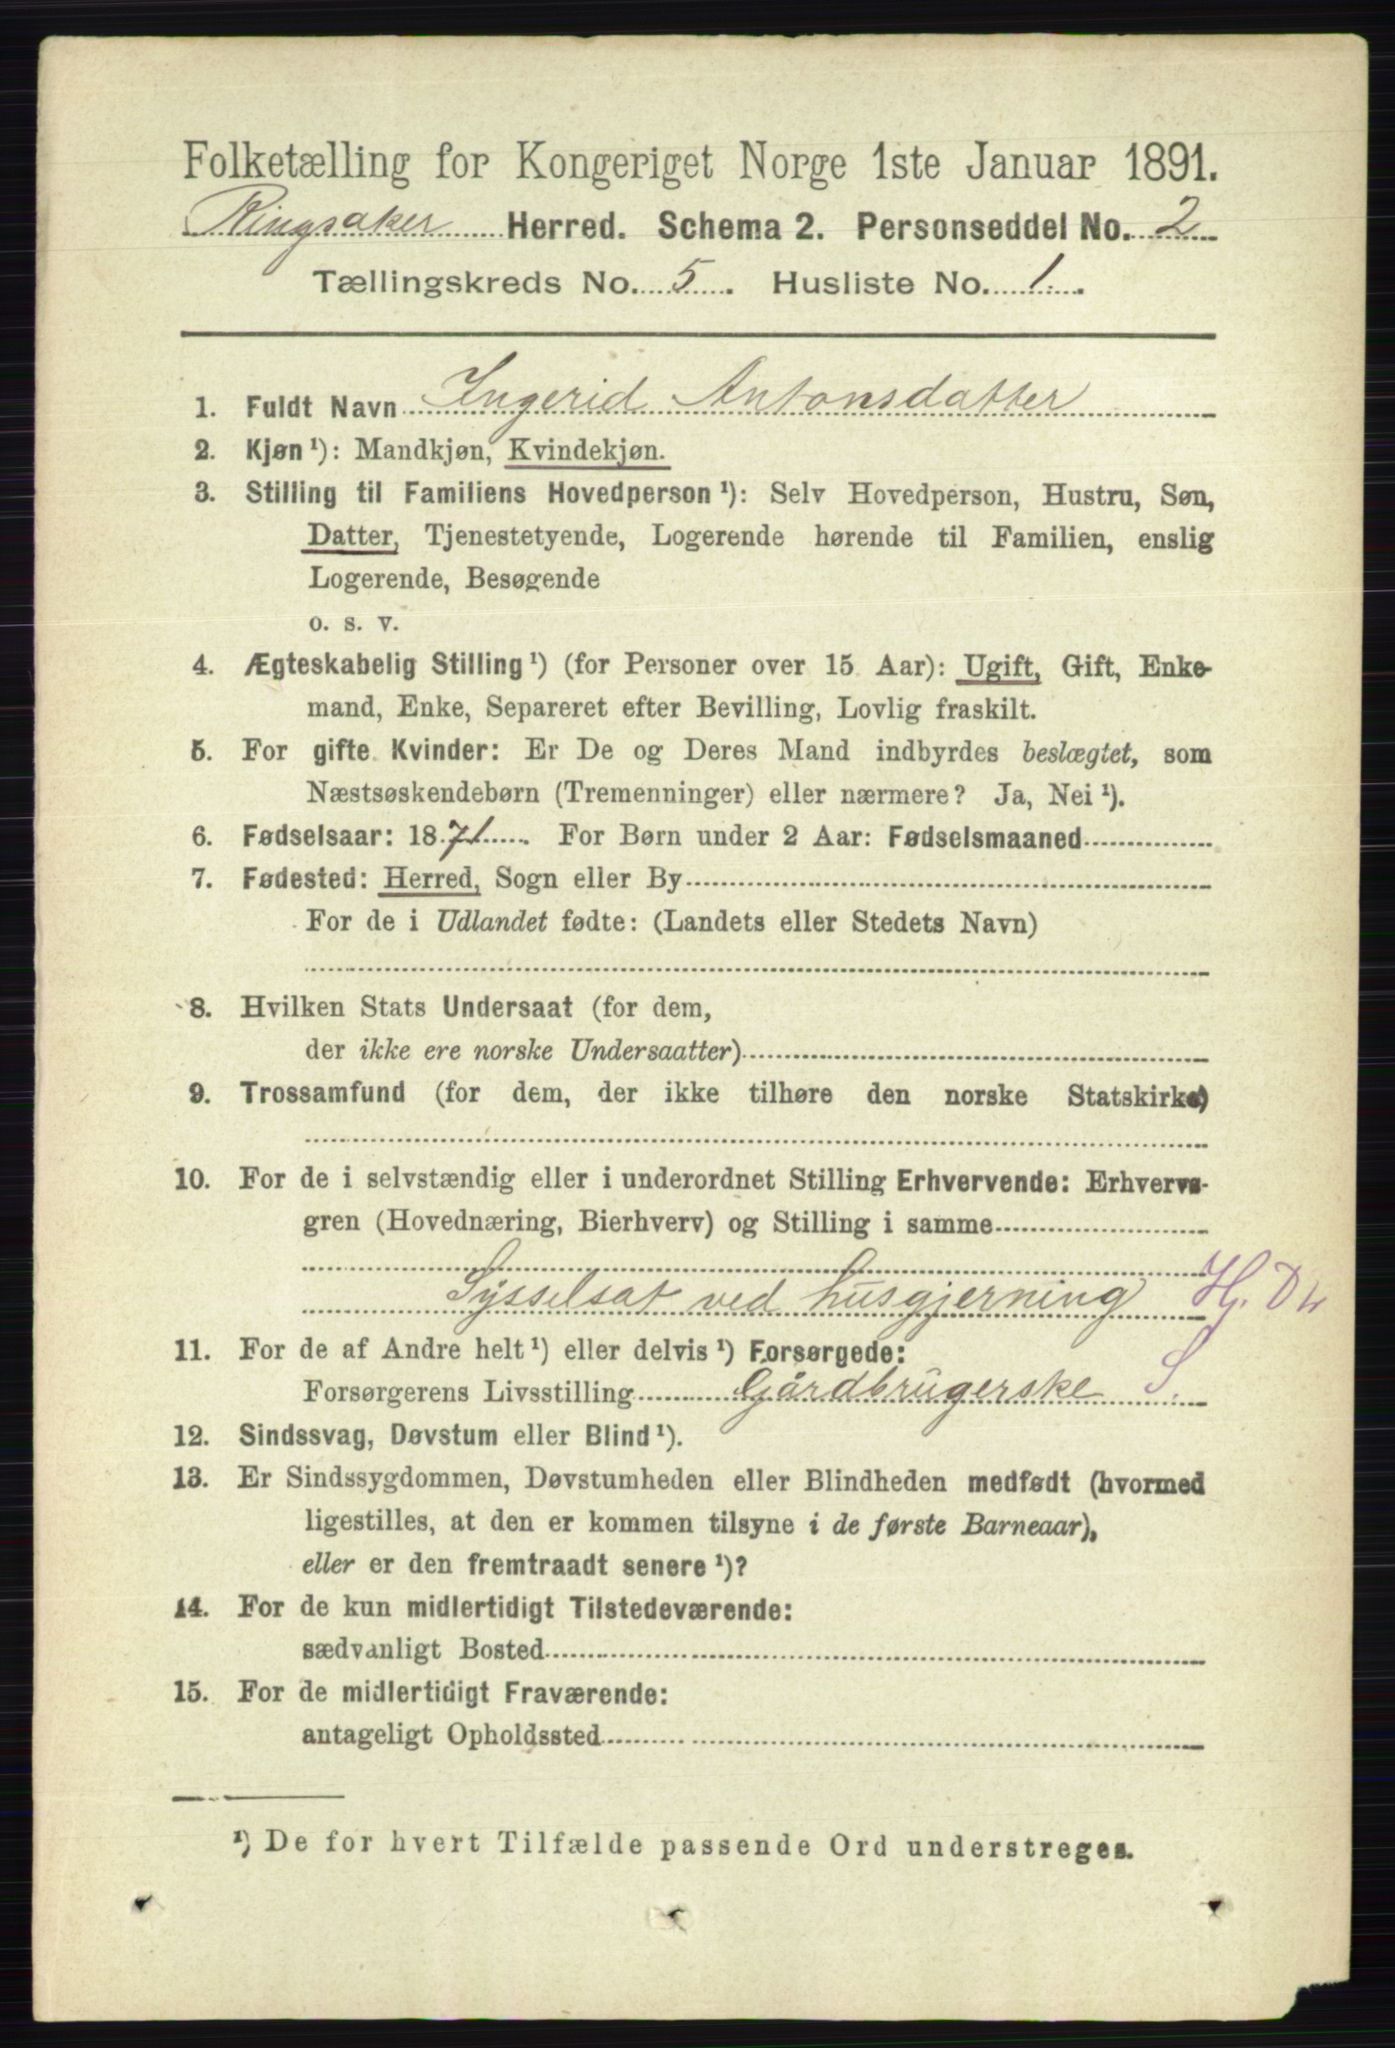 Folketælling for Kongeriget Norge 1ste Januar 1891.
Ringsaker Herred. Schema 2. Personseddel No. 2
Tællingskreds No. 5. Husliste No. 1.
1. Fuldt Navn Ingerid Antonsdatter
2. Kjøn¹): Mandkjøn, Kvindekjøn.
3. Stilling til Familiens Hovedperson¹): Selv Hovedperson, Hustru, Søn,
Datter, Tjenestetyende, Logerende hørende til Familien, enslig
Logerende, Besøgende
o. s. v.
4. Ægteskabelig Stilling¹) (for Personer over 15 Aar): Ugift, Gift, Enke-
mand, Enke, Separeret efter Bevilling, Lovlig fraskilt.
5. For gifte Kvinder: Er De og Deres Mand indbyrdes beslægtet, som
Næstsøskendebørn (Tremenninger) eller nærmere? Ja, Nei¹).
6. Fødselsaar: 1871. For Børn under 2 Aar: Fødselsmaaned
7. Fødested: Herred, Sogn eller By
For de i Udlandet fødte: (Landets eller Stedets Navn)
8. Hvilken Stats Undersaat (for dem,
der ikke ere norske Undersaatter)
9. Trossamfund (for dem, der ikke tilhøre den norske Statskirke)
10. For de i selvstændig eller i underordnet Stilling Erhvervende: Erhvervs-
gren (Hovednæring, Bierhverv) og Stilling i samme
Sysselsat ved husgjerning H. D
11. For de af Andre helt¹) eller delvis¹) Forsørgede:
Forsørgerens Livsstilling Gårdbrugerske S.
12. Sindssvag, Døvstum eller Blind¹).
13. Er Sindssygdommen, Døvstumheden eller Blindheden medfødt (hvormed
ligestilles, at den er kommen tilsyne i de første Barneaar),
eller er den fremtraadt senere¹)?
14. For de kun midlertidigt Tilstedeværende:
sædvanligt Bosted
15. For de midlertidigt Fraværende:
antageligt Opholdssted
¹) De for hvert Tilfælde passende Ord understreges.